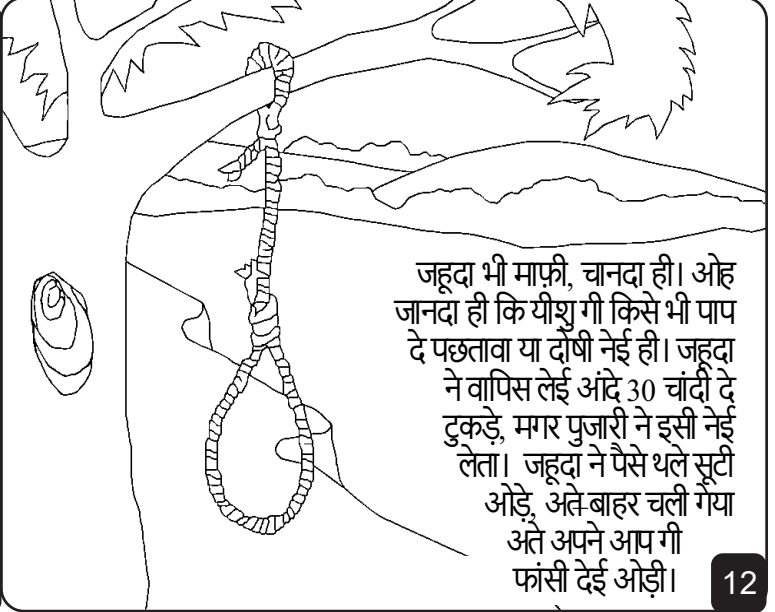 जहूदा भी माफ़ी, चानदा ही। ओह
जानदा ही कि यीशु गी किसे भी पाप
दे पछतावा या दोषी नेई ही। जहूदा
ने वापिस लेई आंदे 30 चांदी दे
टुकड़े, मगर पुजारी ने इसी नेई
लेता। जहूदा ने पैसे थले सूटी
ओड़े, अते-बाहर चली गेया
अते अपने आप गी
फांसी देई ओड़ी।
12